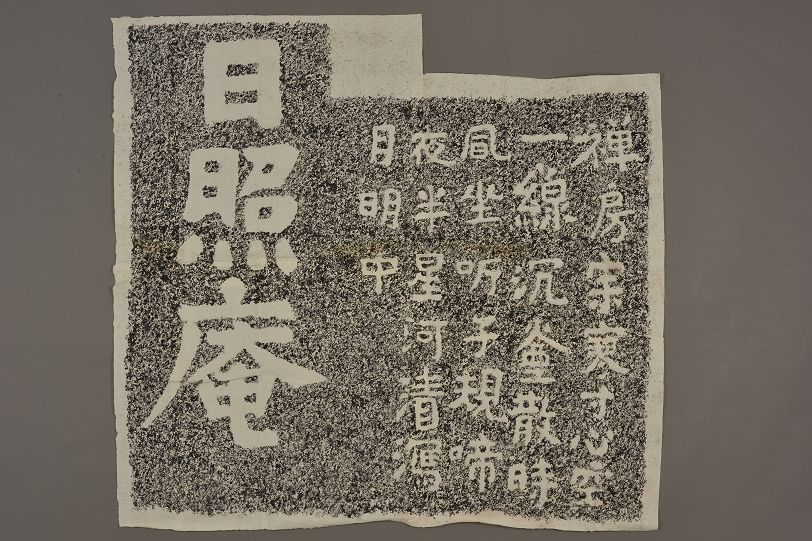 禅房爽寸心空
一線沉散時
凬坐听子規啼
夜半星河清瀉
月明中
日照庵